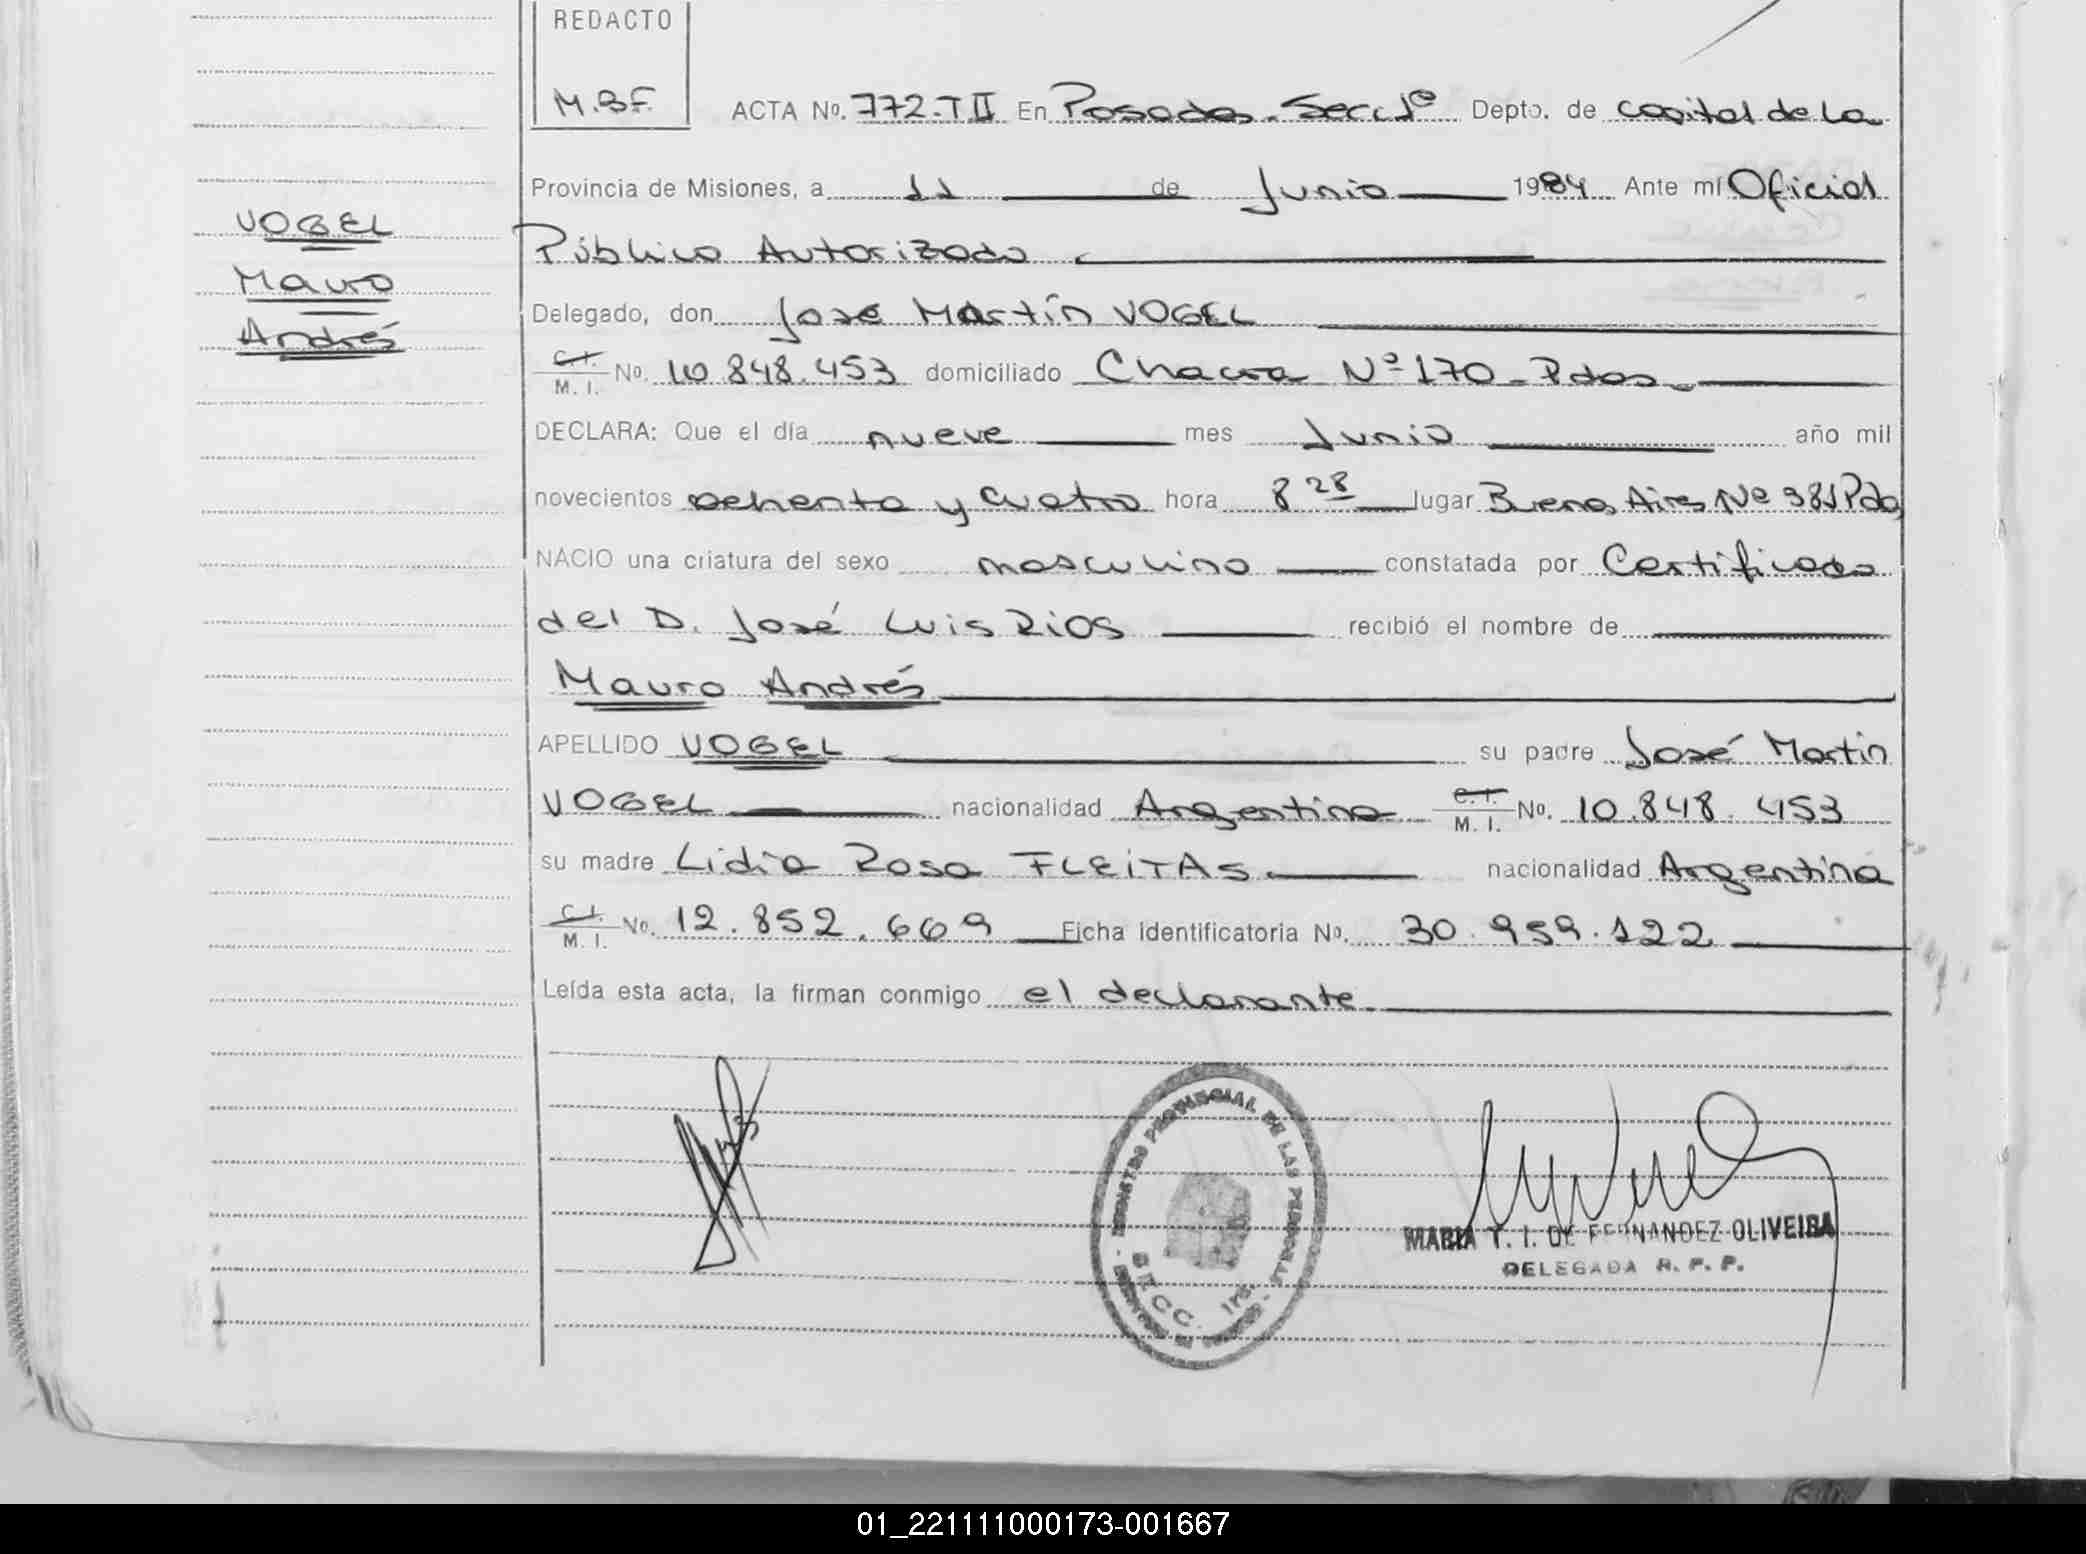 REDACTO
M.B.F.
ACTA No. 772.T II En Posadas. Secc 1ª Depto. de capital de La
Provincia de Misiones, a 11 de Junio 1984 Ante mí Oficial
VOGEL
Público Autorizado
Mauro
Delegado, don José Martín VOGEL
Andrés
C.I. M. I. No. 10.848.453 domiciliado Chacra Nº 170 - Pdas.
DECLARA: Que el día nueve mes Junio año mil
novecientos ochenta y cuatro hora 8 28 lugar Buenos Aires Nº 381 Pdas
NACIO una criatura del sexo masculino constatada por Certificado
del D. José Luis Rios recibió el nombre de
Mauro Andrés
APELLIDO VOGEL su padre José Martin
VOGEL nacionalidad Argentina C.I. M. I. No. 10.848.453
su madre Lidia Rosa FLEITAS nacionalidad Argentina
C.I. M. I. No. 12.852.669 Ficha Identificatoria No. 30.959.122
Leída esta acta, la firman conmigo el declarante.
REGISTRO PROVINCIAL DE LAS PERSONAS
SECC. 1ra.
MARIA T. I. DE FERNANDEZ OLIVEIRA
DELEGADA R. P. P.
01_221111000173-001667